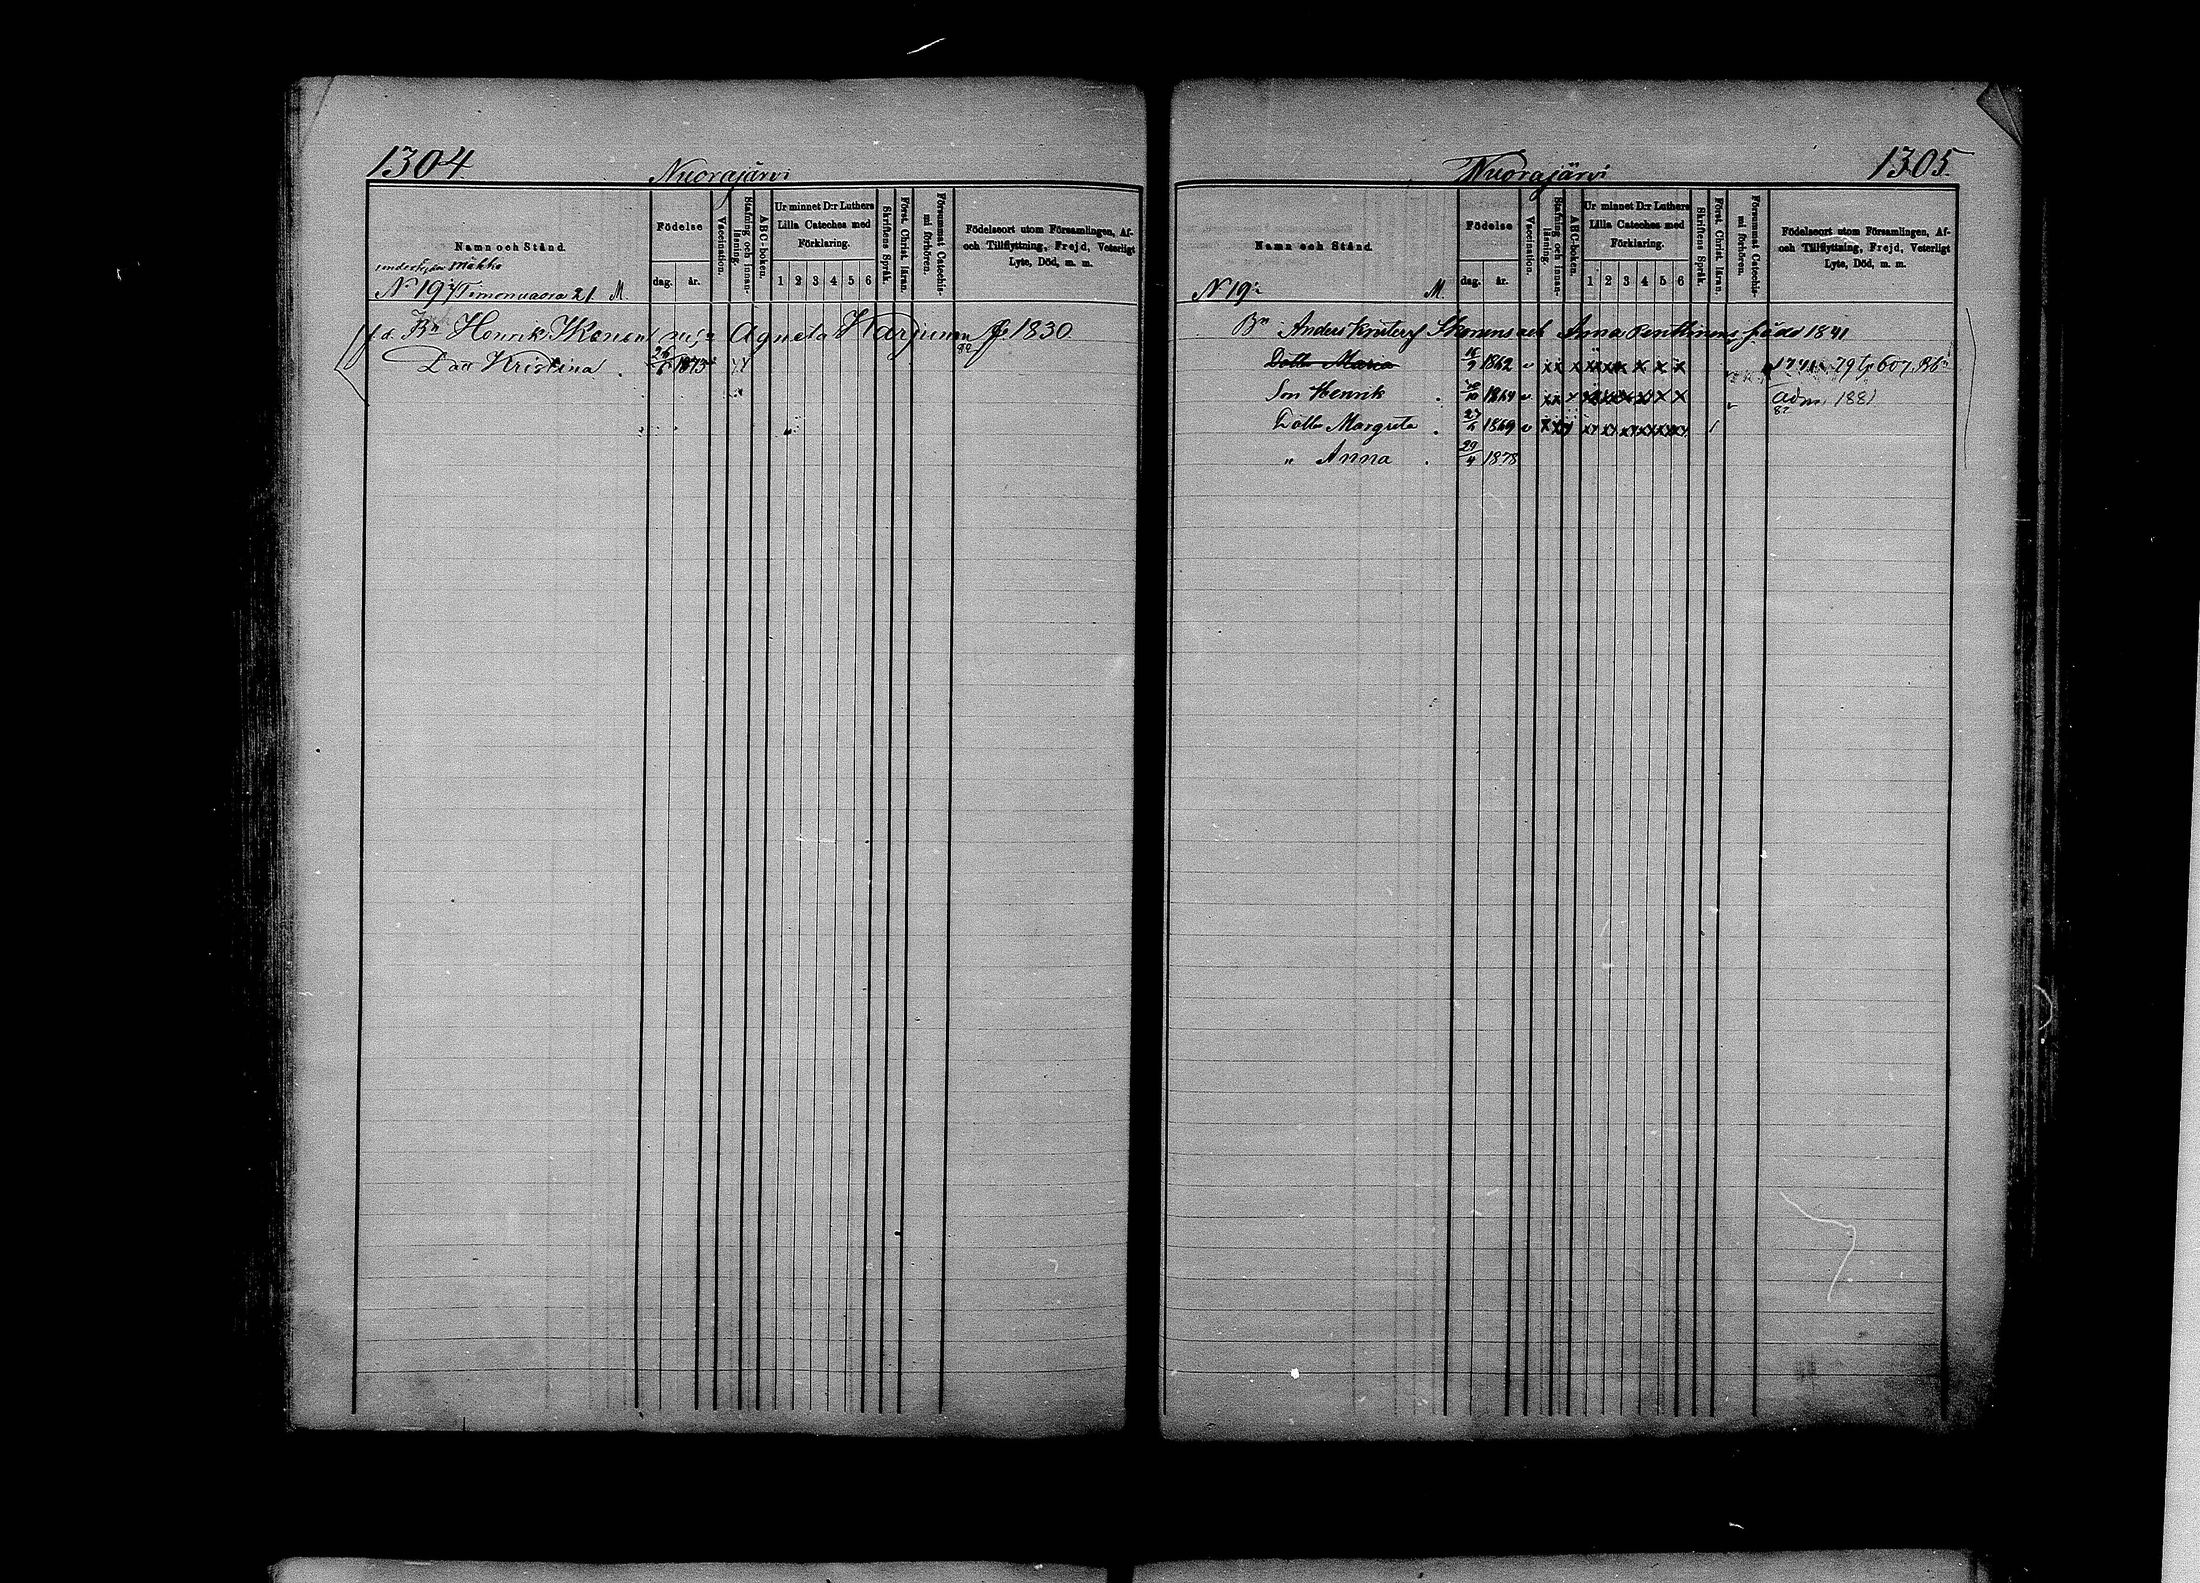 1304
Nuorajärvi
Namn och Stånd.
Födelse
dag.
år.
Vaccination.
Stafning och innanläsning.
ABC-boken.
Ur minnet D:r Luthers Lilla Cateches med Förklaring.
1 2 3 4 5 6
Skriftens Språk.
Först. Christ. läran.
Försummat Catechismi förhören.
Födelseort utom Församlingen, Af- och Tillflyttning, Frejd, Veterligt Lyte, Död, m. m.
Mäkkö
N 19 Timonvaara 21 M.
f.d. Bn Henrik Ikonen Agneta Karjunen 1830
Dott Kristina 26/6 1873
1305
Nuorajärvi
Namn och Stånd.
Födelse
dag.
år.
Vaccination.
Stafning och innanläsning.
ABC-boken.
Ur minnet D:r Luthers Lilla Cateches med Förklaring.
1 2 3 4 5 6
Skriftens Språk.
Först. Christ. läran.
Försummat Catechismi förhören.
Födelseort utom Församlingen, Af- och Tillflyttning, Frejd, Veterligt Lyte, Död, m. m.
N 19 M.
Bn Anders Ikonens och Anna Penttinens födde 1841
Dotter Maria 1862 x x x x x x x x x 79 607
Son Henrik 1864 x x x x x x x x x Adm. 1881
Dotter Margreta 27/6 1869
" Anna 29/4 1878